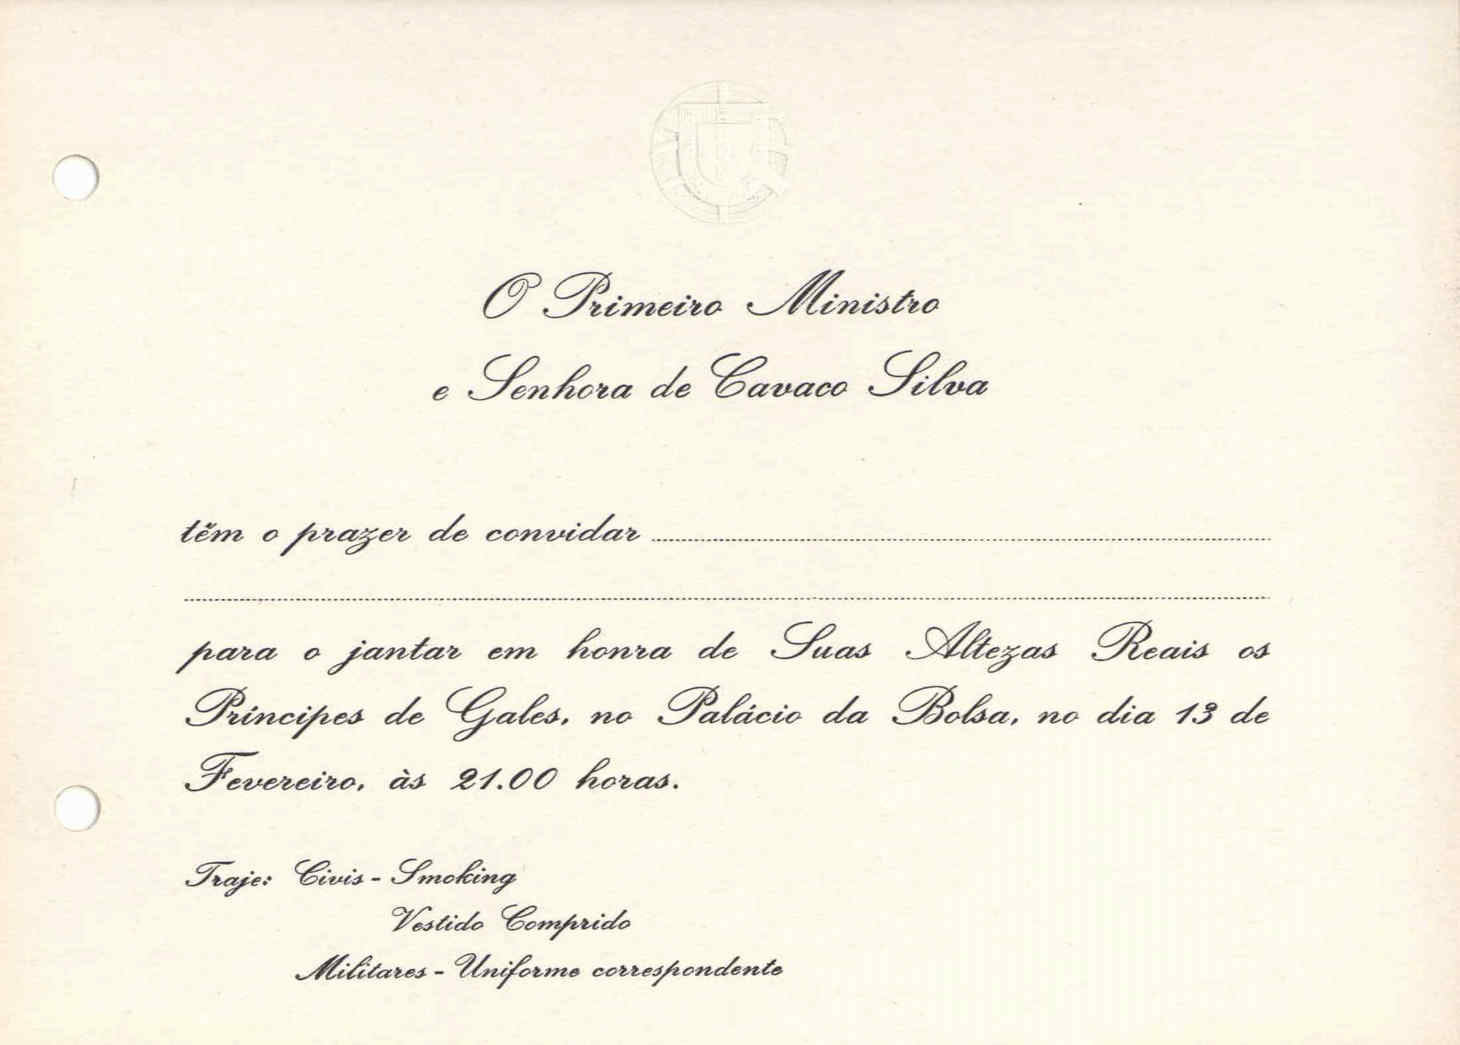 O Primeiro Ministro
e Senhora de Cavaco Silva
têm o prazer de convidar
para o jantar em honra de Suas Altezas Reais os
Príncipes de Gales, no Palácio da Bolsa, no dia 13 de
Fevereiro, às 21.00 horas.
Traje: Civis - Smoking
Vestido Comprido
Militares - Uniforme correspondente